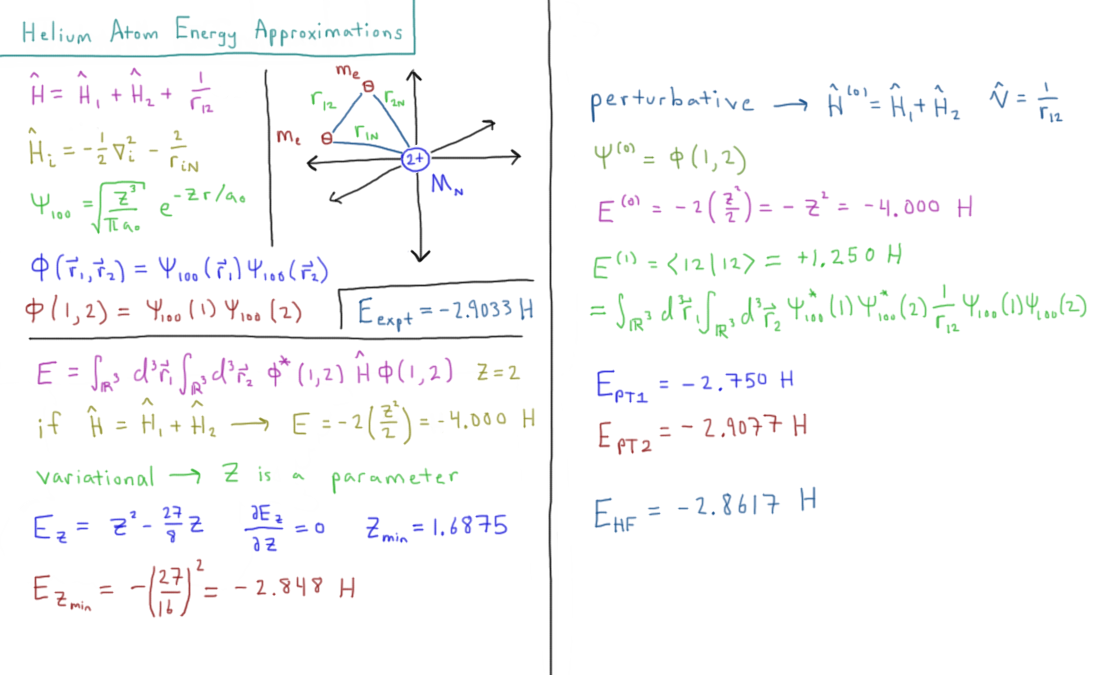 Helium Atom Energy Approximations
Ĥ = Ĥ₁ + Ĥ₂ + 1/r₁₂
Ĥᵢ = -½ ∇ᵢ² - 2/rᵢN
Ψ₁₀₀ = √(Z³/πa₀) e^(-Zr/a₀)
mₑ
⊖
r₁₂
r₂N
mₑ ⊖
r₁N
2+
M_N
Φ(r⃗₁,r⃗₂) = Ψ₁₀₀(r⃗₁)Ψ₁₀₀(r⃗₂)
Φ(1,2) = Ψ₁₀₀(1)Ψ₁₀₀(2)
E_expt = -2.9033 H
E = ∫_ℝ³ d³r⃗₁ ∫_ℝ³ d³r⃗₂ Φ*(1,2) Ĥ Φ(1,2) Z=2
if Ĥ = Ĥ₁ + Ĥ₂ → E = -2(Z²/2) = -4.000 H
variational → Z is a parameter
E_Z = Z² - 27/8 Z ∂E_Z/∂Z = 0 Z_min = 1.6875
E_Z_min = -(27/16)² = -2.848 H
perturbative → Ĥ⁽⁰⁾ = Ĥ₁ + Ĥ₂ V̂ = 1/r₁₂
Ψ⁽⁰⁾ = Φ(1,2)
E⁽⁰⁾ = -2(Z²/2) = -Z² = -4.000 H
E⁽¹⁾ = <12|12> = +1.250 H
= ∫_ℝ³ d³r⃗₁ ∫_ℝ³ d³r⃗₂ Ψ*₁₀₀(1)Ψ*₁₀₀(2) 1/r₁₂ Ψ₁₀₀(1)Ψ₁₀₀(2)
E_PT1 = -2.750 H
E_PT2 = -2.9077 H
E_HF = -2.8617 H